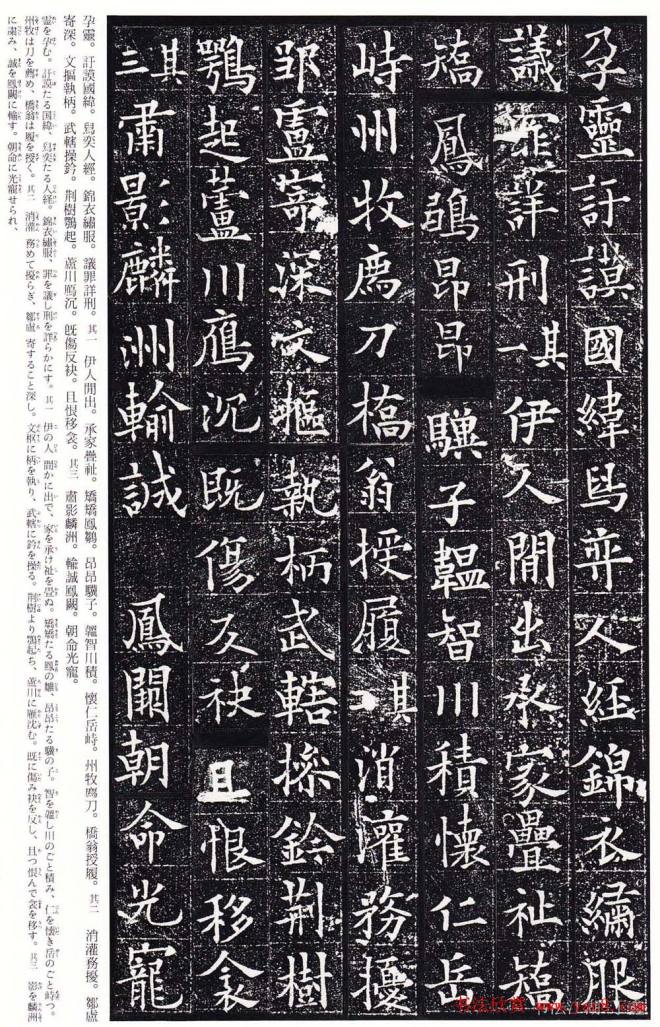 孕靈訏謨國緯舄弈人經錦衣繡服
議罪詳刑其一伊人閒出承家疊祉矯
矯鳳鶵昂昂驥子韞智川積懷仁岳
峙州牧薦刀橋翁授履其二消灌務擾
鄒盧寄深文樞執柄武轄操鈐荊樹
鶚起蘆川鴈沉既傷反袂且恨移衾
其三肅影麟洲輸誠鳳闕朝命光寵
孕靈。訏謨國緯。舄奕人經。錦衣繡服。議罪詳刑。其一 伊人閒出。承家疊祉。矯矯鳳鶵。昂昂驥子。韞智川積。懷仁岳峙。州牧薦刀。橋翁授履。其二 消灌務擾。鄒盧
寄深。文樞執柄。武轄操鈐。荆樹鶚起。蘆川鴈沉。既傷反袂。且恨移衾。其三 肅影麟洲。輸誠鳳闕。朝命光寵。
靈を孕む。訏謨たる国緯、舄奕たる人経。錦衣繡服、罪を議し刑を詳らかにす。其一 伊の人 間かに出で、家を承け祉を畳ぬ。矯矯たる鳳の雛、昂昂たる驥の子。智を韞し川のごと積み、仁を懐き岳のごと峙つ。
州牧は刀を薦め、橋翁は履を授く。其二 消灌 務めて擾らぎ、鄒盧 寄すること深し。文枢に柄を執り、武轄に鈐を操る。荆樹より鶚起ち、蘆川に雁沈む。既に傷み袂を反し、且つ恨んで衾を移す。其三 影を麟洲
に粛み、誠を鳳闕に輸す。朝命に光寵せられ、
书法欣赏